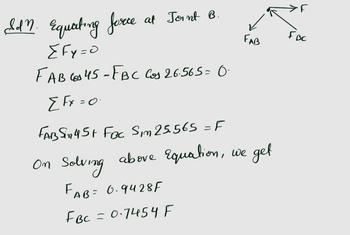 Soln. Equating force at Joint B.
F
FAB
FBC
ΣFy=0
FAB Cos 45 - FBC Cos 26.565 = 0.
ΣFx = 0.
FAB Sin 45 + FBC Sin 25.565 = F
On Solving above Equation, we get
FAB = 0.9428F
FBC = 0.7454 F